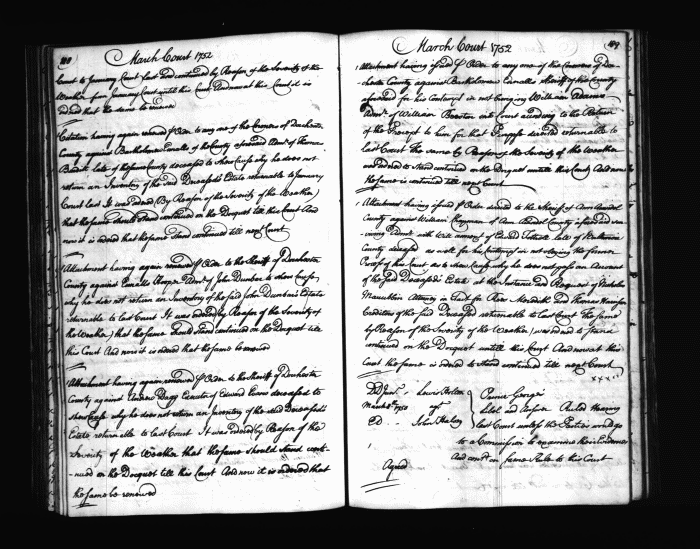 188
March Court 1752
Court to January Court last and continued by Reason of the Severity of the
Weather from January Court untill this Court And now at this Court it is
ordered that the same be renewed
Citation having again renewed Order to any one of the Coroners of Dorchester
County against Bartholomew Ennalls of the County aforesaid Admr of Thomas
late of the same County deceased to Shew Cause why he does not
return an Inventory of the said Deceased's Estate returnable to January
Court last It was Ordered (By Reason of the Severity of the Weather)
that the same should Stand continued on the Docquet till this Court And
now it is ordered that the same Stand continued till next Court
Attachment having again renewed Order to the Sheriff of Dorchester
County against Ennalls Hooper Admr of John Dunbar to shew Cause
why he does not return an Inventory of the said John Dunbar's Estate
returnable to last Court It was ordered (by Reason of the Severity of
the Weather) that the same should Stand continued on the Docquet till
this Court And now it is ordered that the same be renewed
Attachment having again renewed Order to the Sheriff of Dorchester
County against Andrew Executor of Edward Evans deceased to
shew Cause why he does not return an Inventory of the said Deceased's
Estate returnable to last Court It was ordered by Reason of the
Severity of the Weather that the same should Stand conti-
nued on the Docquet till this Court And now it is ordered that
the same be renewed
189
March Court 1752
Attachment having issued Order to any one of the Coroners of Dor-
chester County against Bartholomew Ennalls Sheriff of this County
aforesaid for his Contempt in not bringing William Adams
Admr of William into Court according to the Return
of the Precept to him for that Purpose directed returnable to
last Court The same by Reason of the Severity of the Weather
was ordered to Stand continued on the Docquet untill this Court And now
the same is continued till next Court
Attachment having issued Order directed to the Sheriff of Ann Arundel
County against William of Ann Arundel County
Admr with Will annexed of late of
County deceased as well for his Contempt in not obeying the former
Process of this Court as to shew Cause why he does not pass an Account
of the said Deceased's Estate at the Instance and Request of Nicholas
Maccubbin Attorney in Fact for Meredith and Thomas Harrison
Creditors of the said Deceased returnable to last Court the same
by Reason of the Severity of the Weather was ordered to Stand
continued on the Docquet untill this Court And now at this
Court the same is ordered to Stand continued till next Court
Lewis
agt
John
Prince George's
Libel and Answer Ruled Hearing
last Court unless the Parties would go
to a Commission to examine their Evidence
And cont'd on same Rule to this Court
Agreed